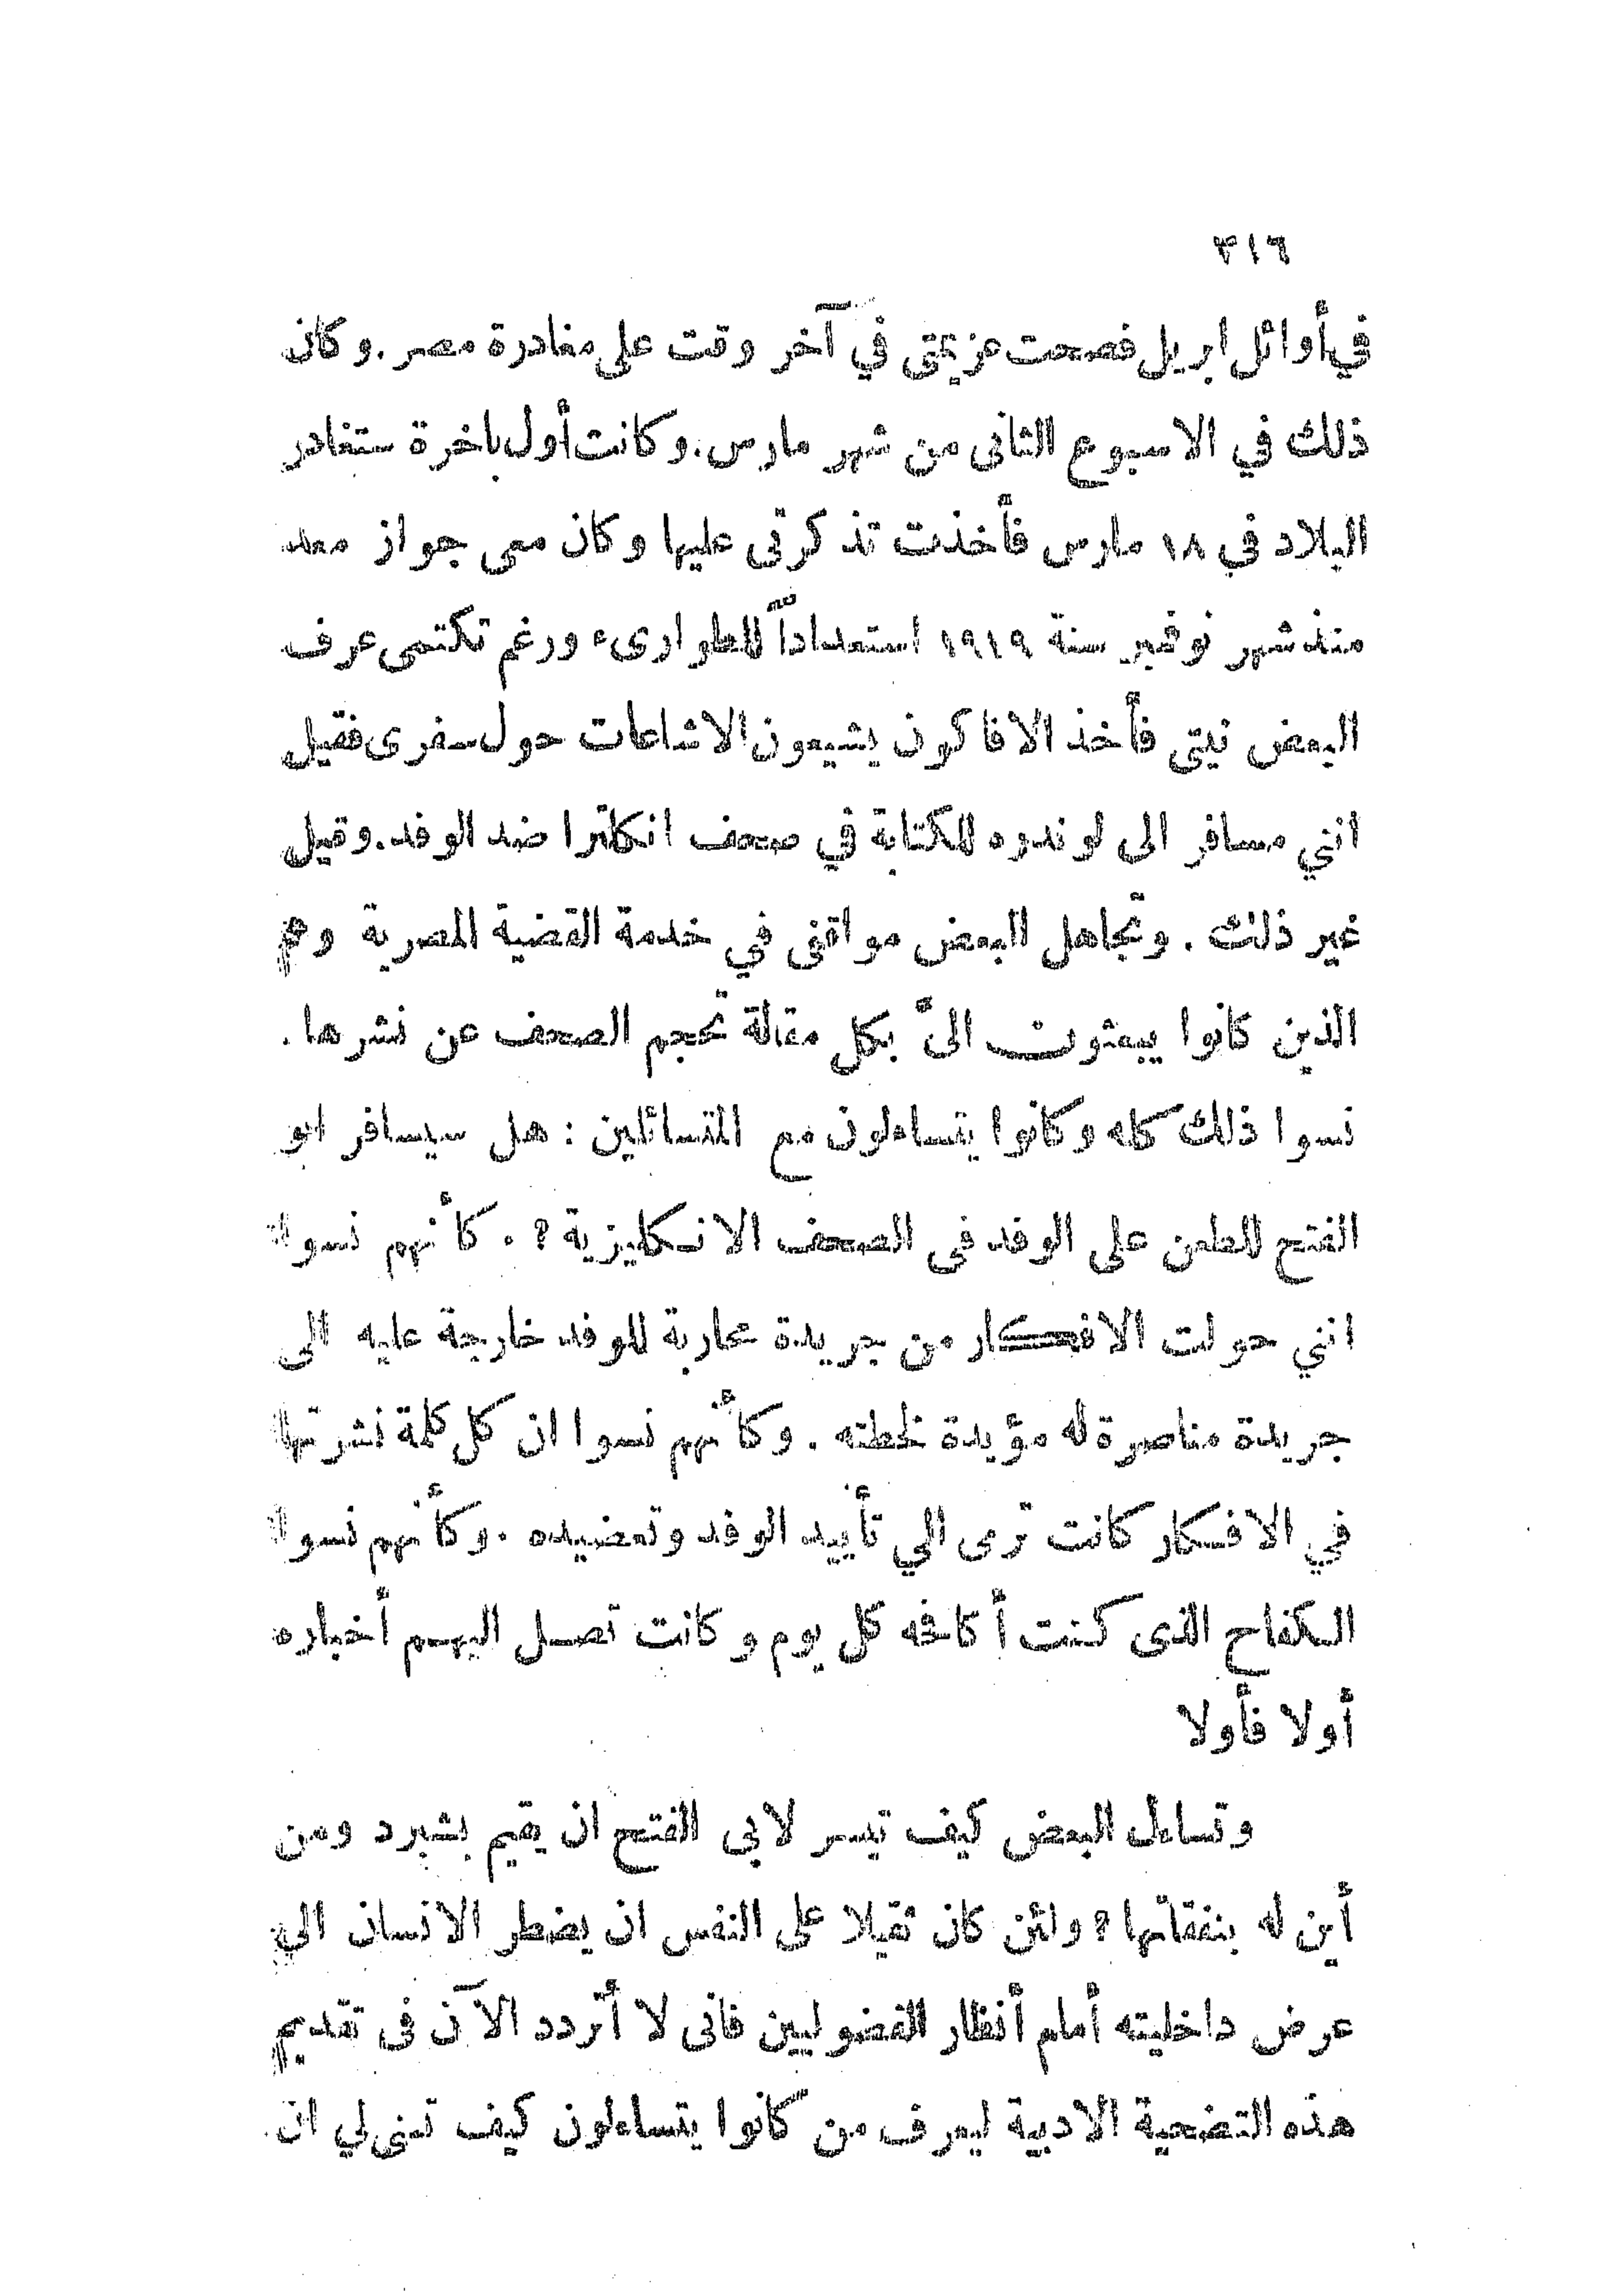 ٣١٦
في أوائل ابريل فصحت عزيمتى في آخر وقت على مغادرة مصر . وكان
ذلك في الاسبوع الثانى من شهر مارس . وكانت أول باخرة ستغادر
البلاد في ١٨ مارس فأخذت تذكرتى عليها وكان معى جواز معد
منذ شهر نوفمبر سنة ١٩١٩ استعداداً للطوارىء ورغم تكتمى عرف
البعض نيتى فأخذ الافاكون يشيعون الاشاعات حول سفرى فقيل
اننى مسافر الى لوندره للكتابة في صحف انكلترا ضد الوفد . وقيل
غير ذلك . وتجاهل البعض مواقفى في خدمة القضية المصرية وهم
الذين كانوا يبعثون الىّ بكل مقالة تحجم الصحف عن نشرها .
نسوا ذلك كله وكانوا يتساءلون مع المتسائلين : هل سيسافر ابو
الفتح للطعن على الوفد فى الصحف الانكليزية ؟ . كأنهم نسوا
انني حولت الافكار من جريدة محاربة للوفد خارجة عليه الى
جريدة مناصرة له مؤيدة لخطته . وكأنهم نسوا ان كل كلمة نشرتها
في الافكار كانت ترمى الي تأييد الوفد وتعضيده . وكأنهم نسوا
الكفاح الذى كنت أكافحه كل يوم وكانت تصل اليهم أخباره
أولا فأولا
وتساءل البعض كيف تيسر لابى الفتح ان يقيم بشبرد ومن
أين له بنفقاتها ؟ ولئن كان ثقيلا على النفس ان يضطر الانسان الي
عرض داخليته أمام أنظار الفضوليين فانى لا أتردد الآن فى تقديم
هذه التضحية الادبية ليعرف من كانوا يتساءلون كيف تسنى لي ان